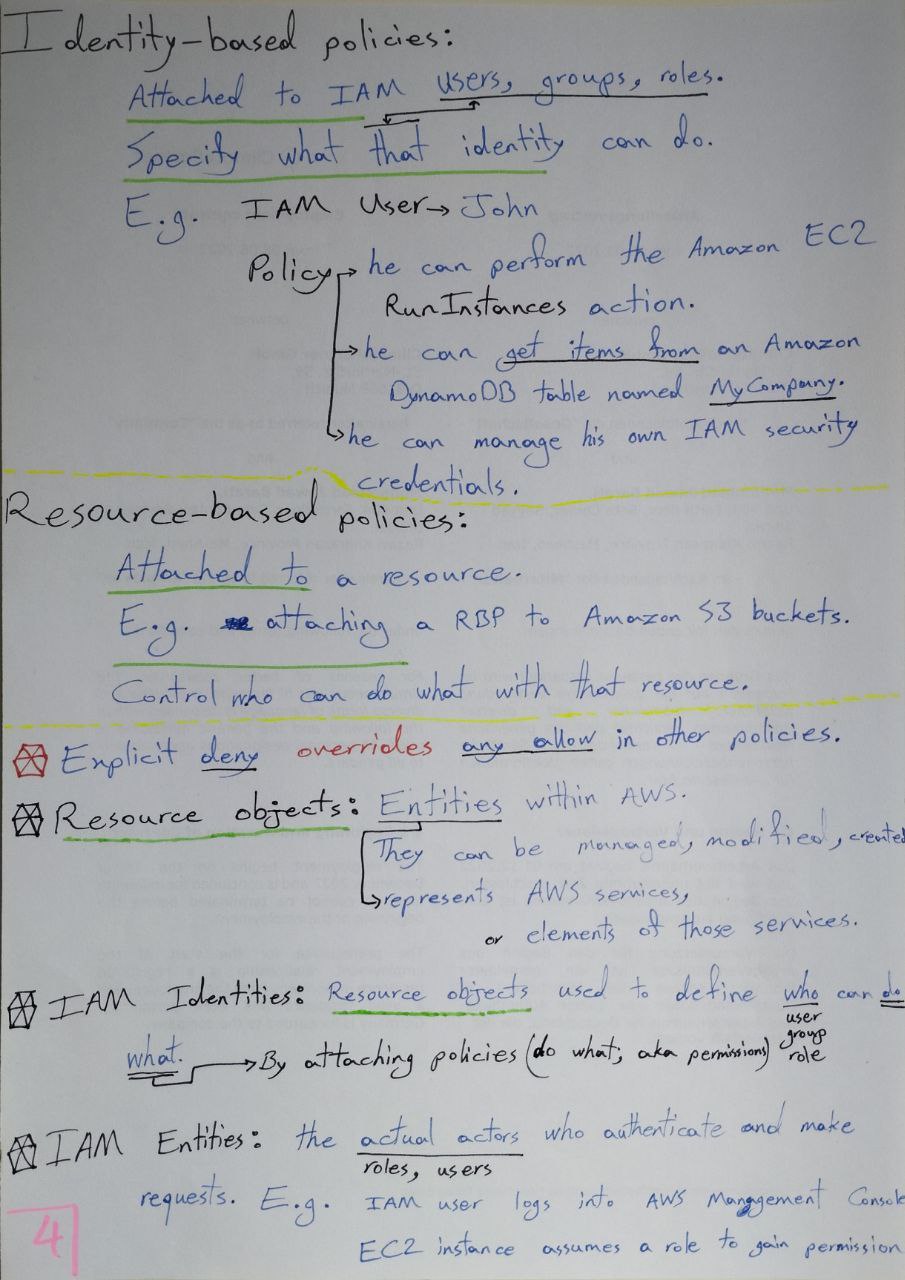 Identity-based policies:
Attached to IAM users, groups, roles.
Specify what that identity can do.
E.g. IAM User → John
Policy → he can perform the Amazon EC2
RunInstances action.
→ he can get items from an Amazon
DynamoDB table named MyCompany.
→ he can manage his own IAM security
credentials.
Resource-based policies:
Attached to a resource.
E.g. attaching a RBP to Amazon S3 buckets.
Control who can do what with that resource.
Explicit deny overrides any allow in other policies.
Resource objects: Entities within AWS.
They can be managed, modified, created
→ represents AWS services,
or elements of those services.
IAM Identities: Resource objects used to define who can do
user
group
what. → By attaching policies (do what; aka permissions) role
IAM Entities: the actual actors who authenticate and make
roles, users
requests. E.g. IAM user logs into AWS Management Console
EC2 instance assumes a role to gain permission
4